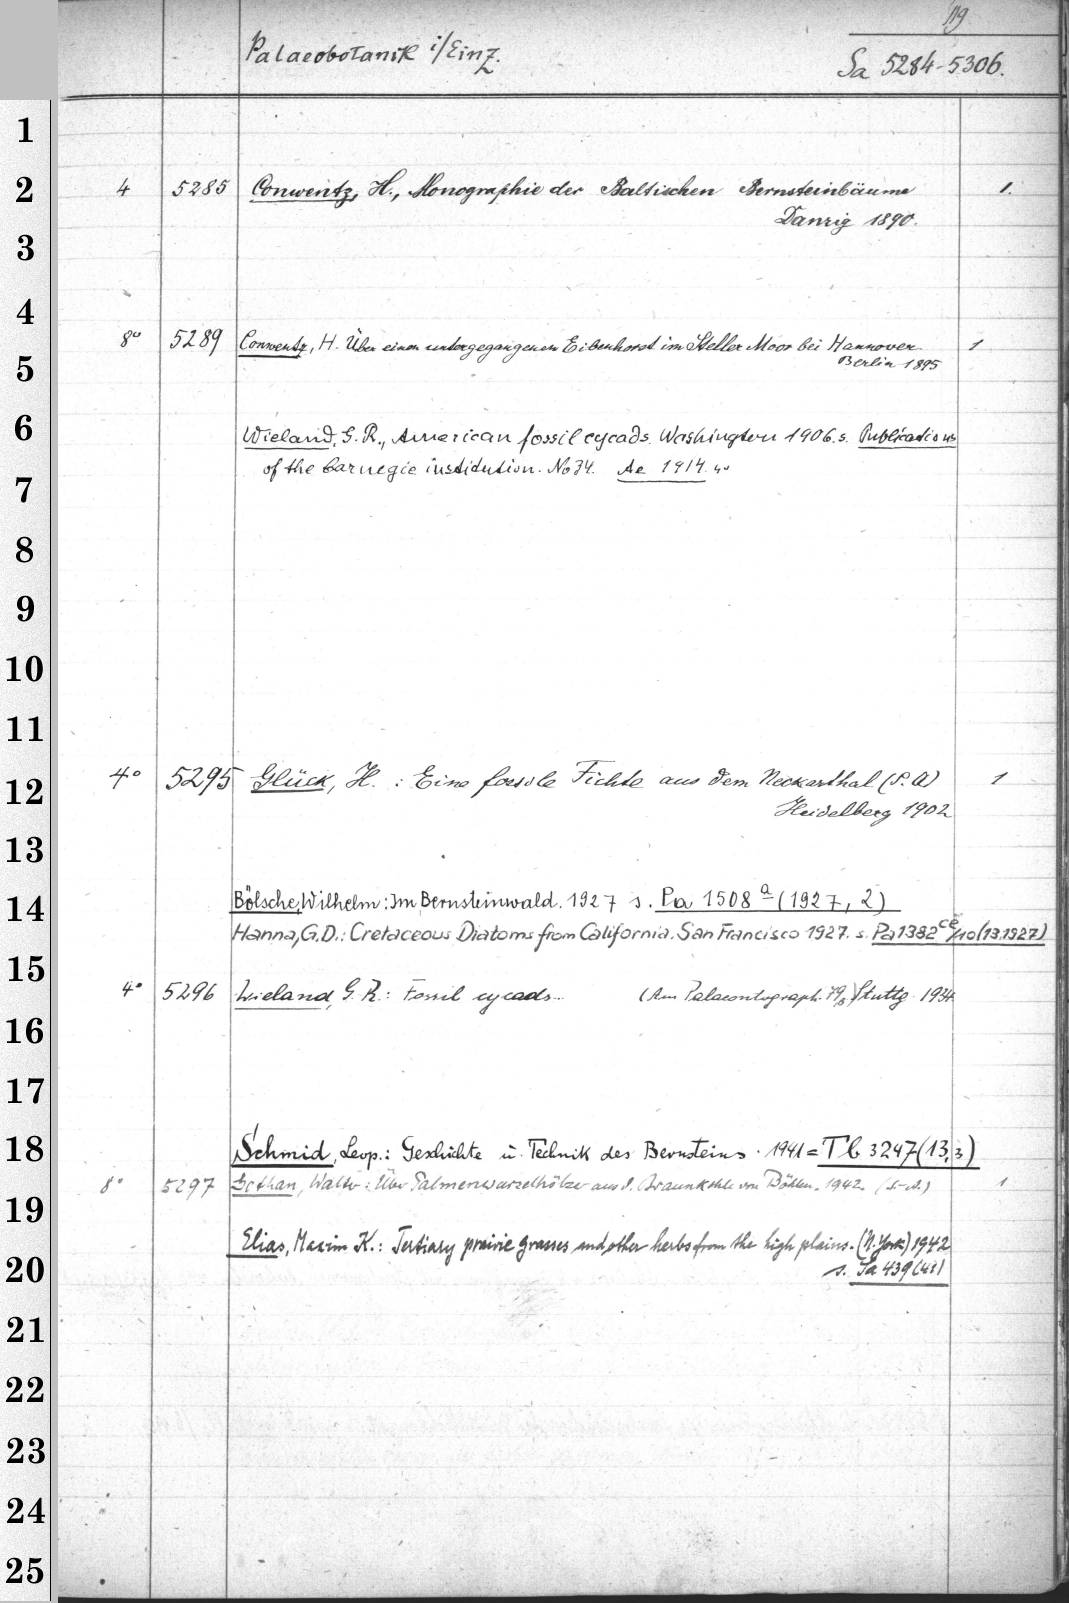 119
Palaeobotanik i/Einz.
Sa 5284-5306.
1
2 4 5285 Conwentz, H., Monographie der Baltischen Bernsteinbäume 1.
Danzig 1890.
3
4
8° 5289 Conwentz, H. Über einen untergegangenen Eibenhorst im Steller Moor bei Hannover. 1
5 Berlin 1895
6 Wieland, G. R., American fossil cycads. Washington 1906. s. Publications
of the Carnegie institution. No 34. Ae 1914. 4°
7
8
9
10
11
12 4° 5295 Glück, H. : Eine fossile Fichte aus dem Neckarthal (S. A) 1
Heidelberg 1902
13
14 Bölsche, Wilhelm: Im Bernsteinwald. 1927 s. Pa 1508 a (1927, 2)
Hanna, G.D.: Cretaceous Diatoms from California. San Francisco 1927. s. Pa 1382 ce/10 (13.1927)
15
4° 5296 Wieland, G. R.: Fossil cycads.. (Aus Palaeontograph. 79,B) Stuttg 1934
16
17
18 Schmid, Leop.: Geschichte u. Technik des Bernsteins. 1941 = Tb 3247 (13,3)
8° 5297 Gothan, Walter: Über Palmenwurzelhölzer aus d. Braunkohle von Böhlen. 1942. (S.-A.) 1
19
Elias, Maxim K.: Tertiary prairie grasses and other herbs from the high plains. (N. York) 1942
20 s. Sa 439 (41)
21
22
23
24
25